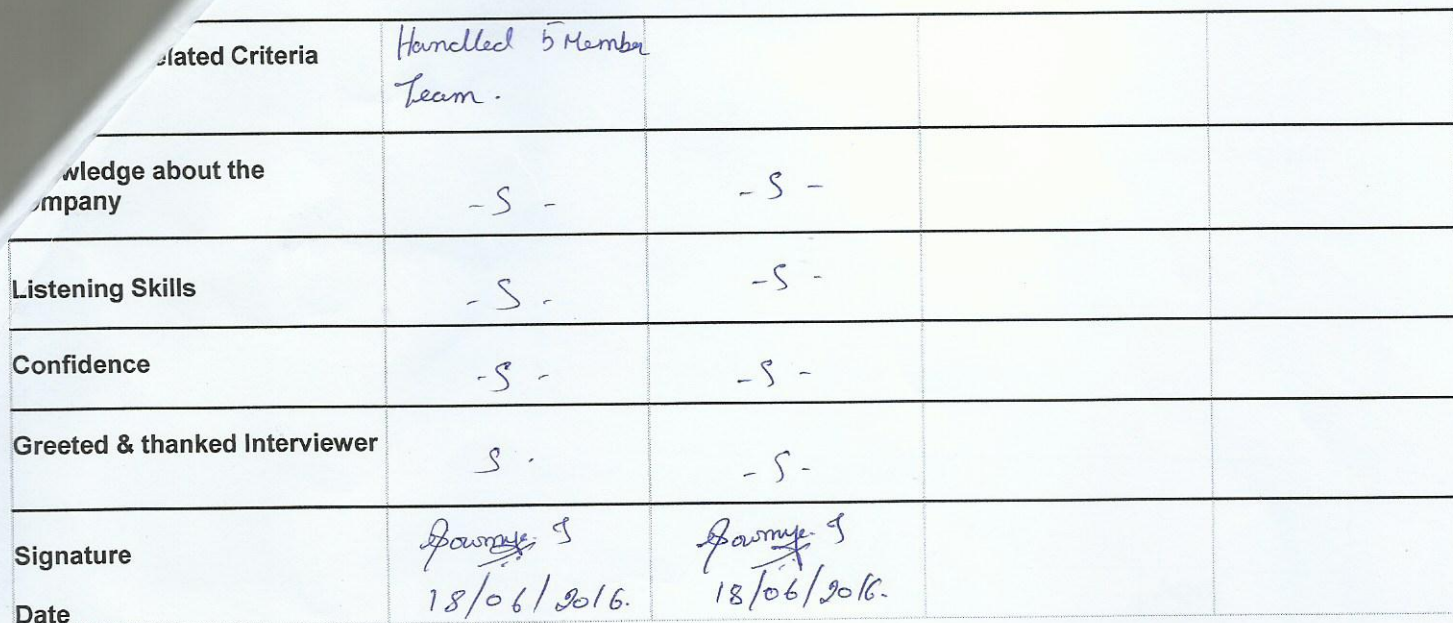 elated Criteria Handled 5 Member
Team.
wledge about the
mpany -S - -S -
Listening Skills -S - -S -
Confidence -S - -S -
Greeted & thanked Interviewer S - -S -
Signature Sowmya. J Sowmya. J
Date 18/06/2016. 18/06/2016.